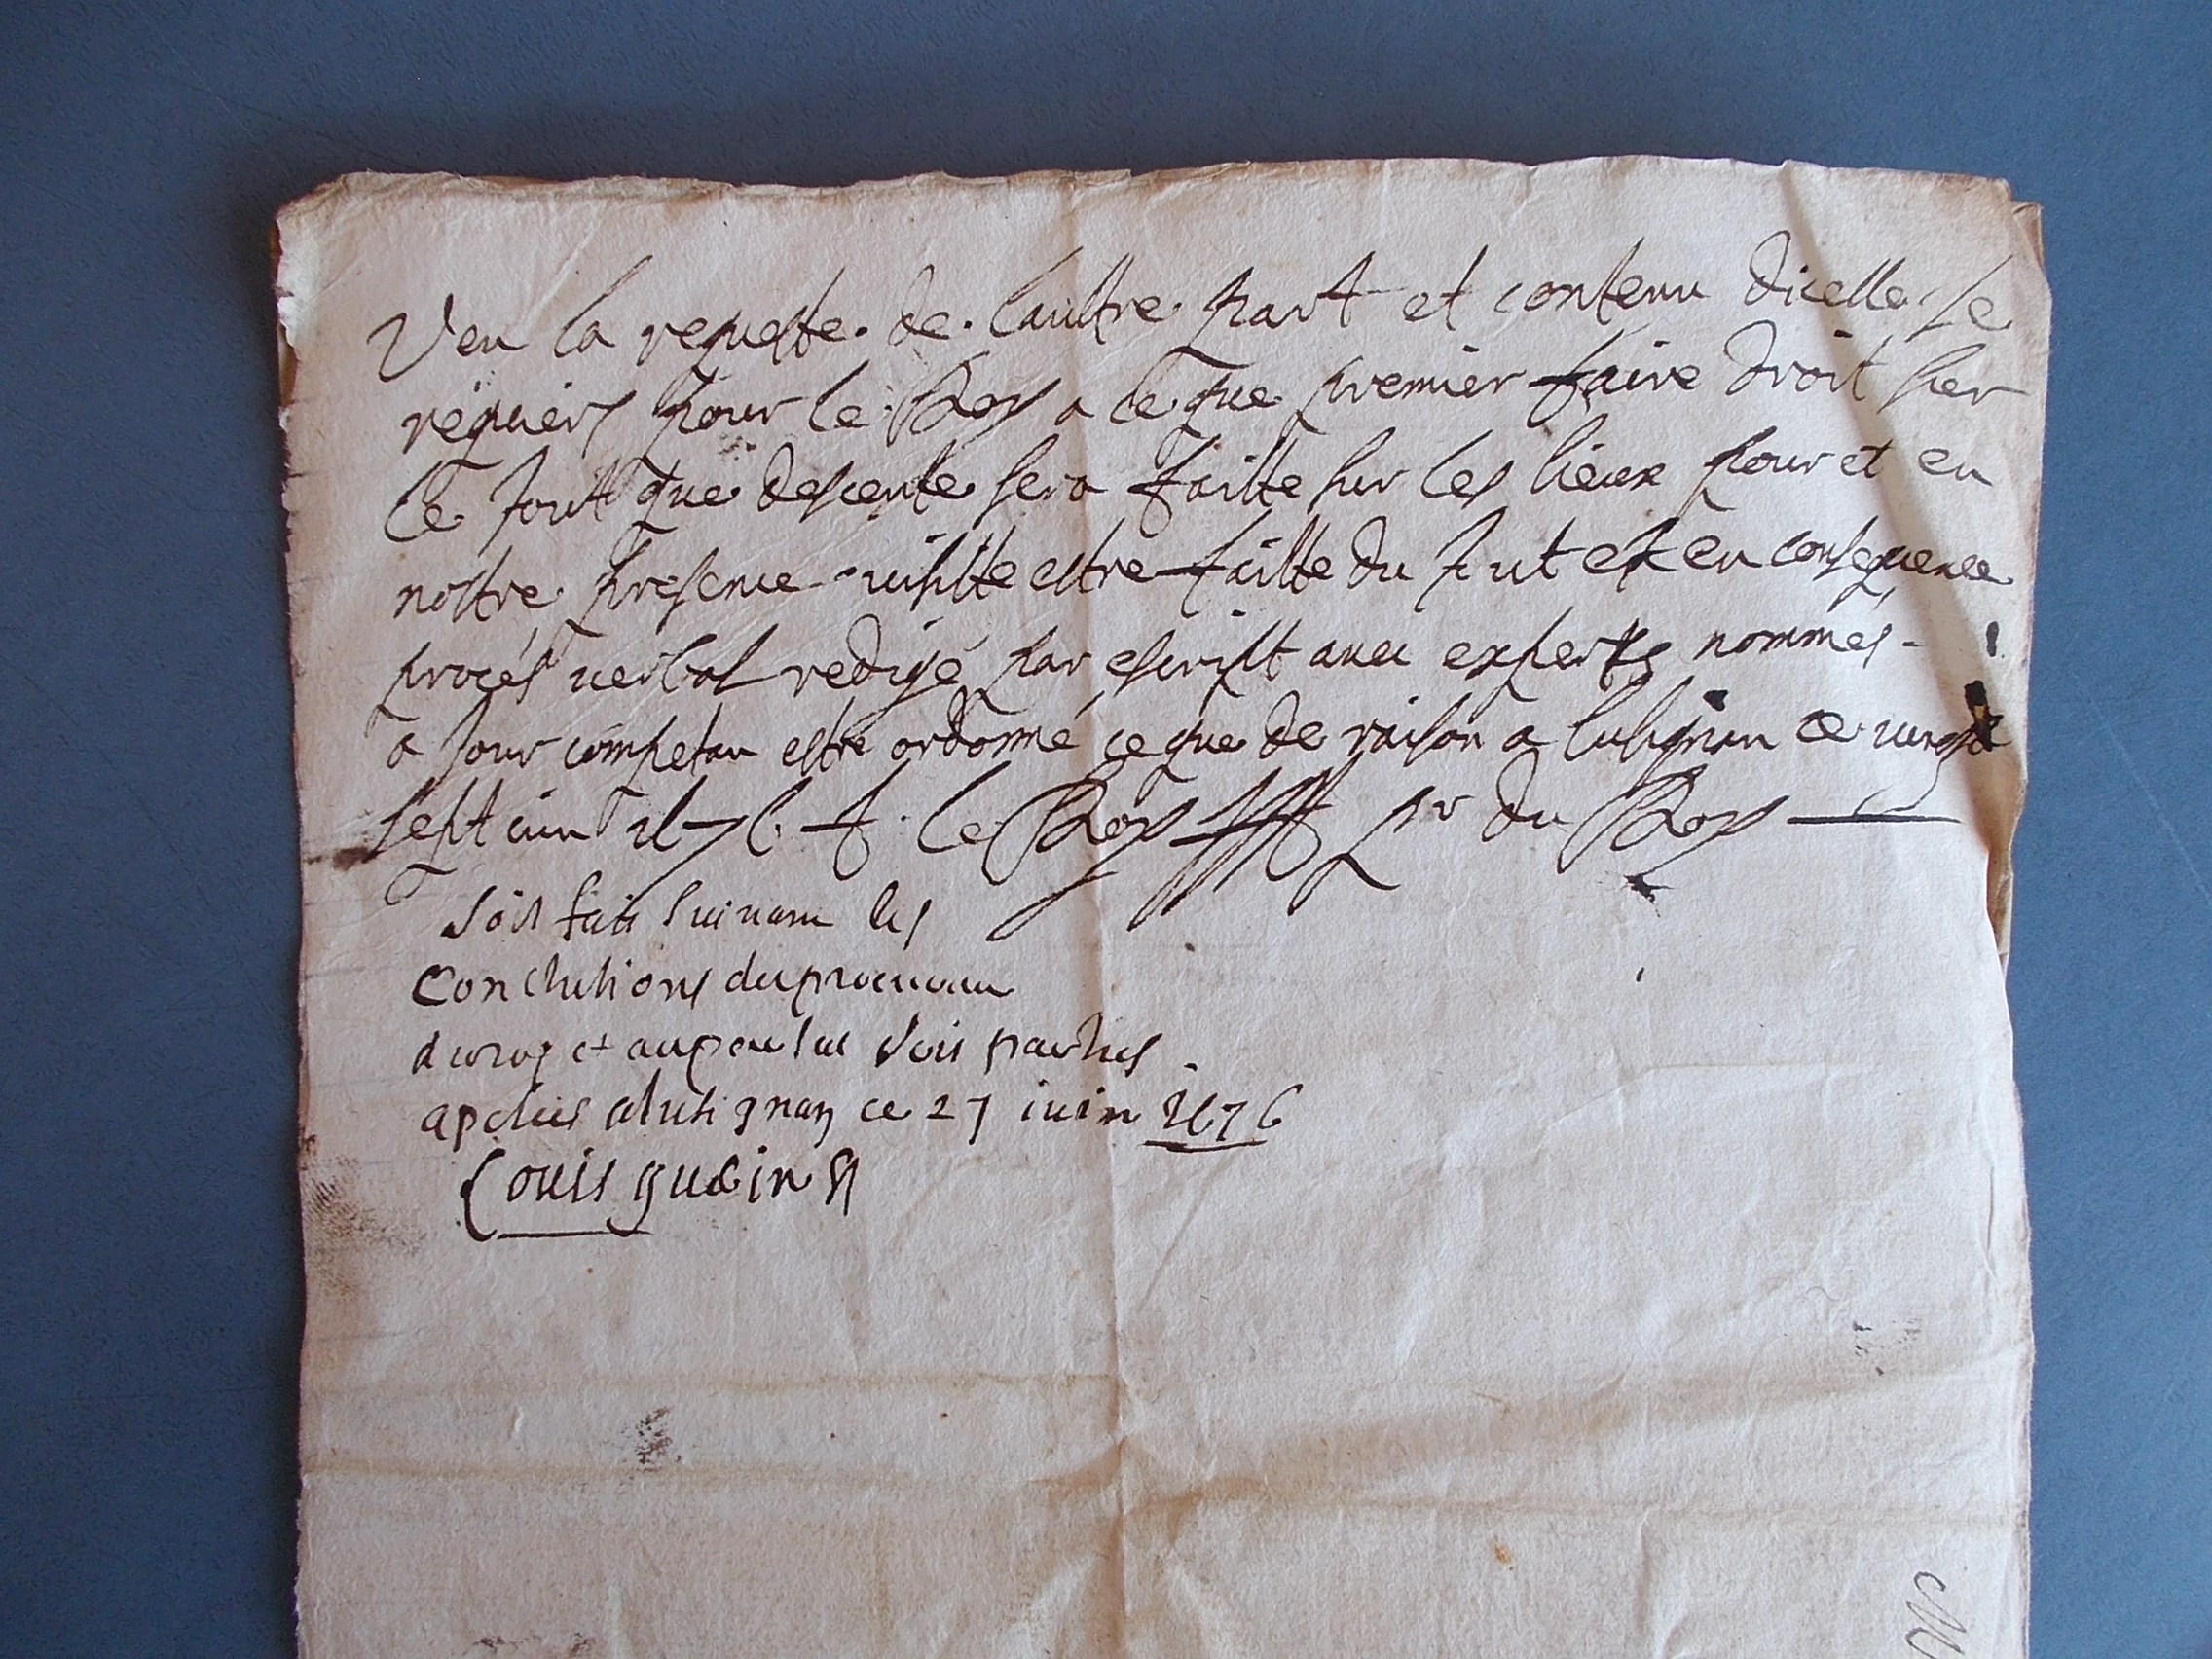 Veu la requeste de laultre part et contenu dicelle Je
requiers pour le Roy a ce que premier faire droit sur
le tout que descente sera faitte sur les lieux pour et en
nostre presence visitte estre faitte du tout et en consequence
proces verbal redigé par escript avec experts nommes
a jour competan estre ordonné ce que de raison a lusignan ce vingt
sept iuin 1676 le Roy pr du Roy
Soit fait suivant les
conclusions du procureur
du roy et
a lusignan ce 27 iuin 1676
Louis gudin